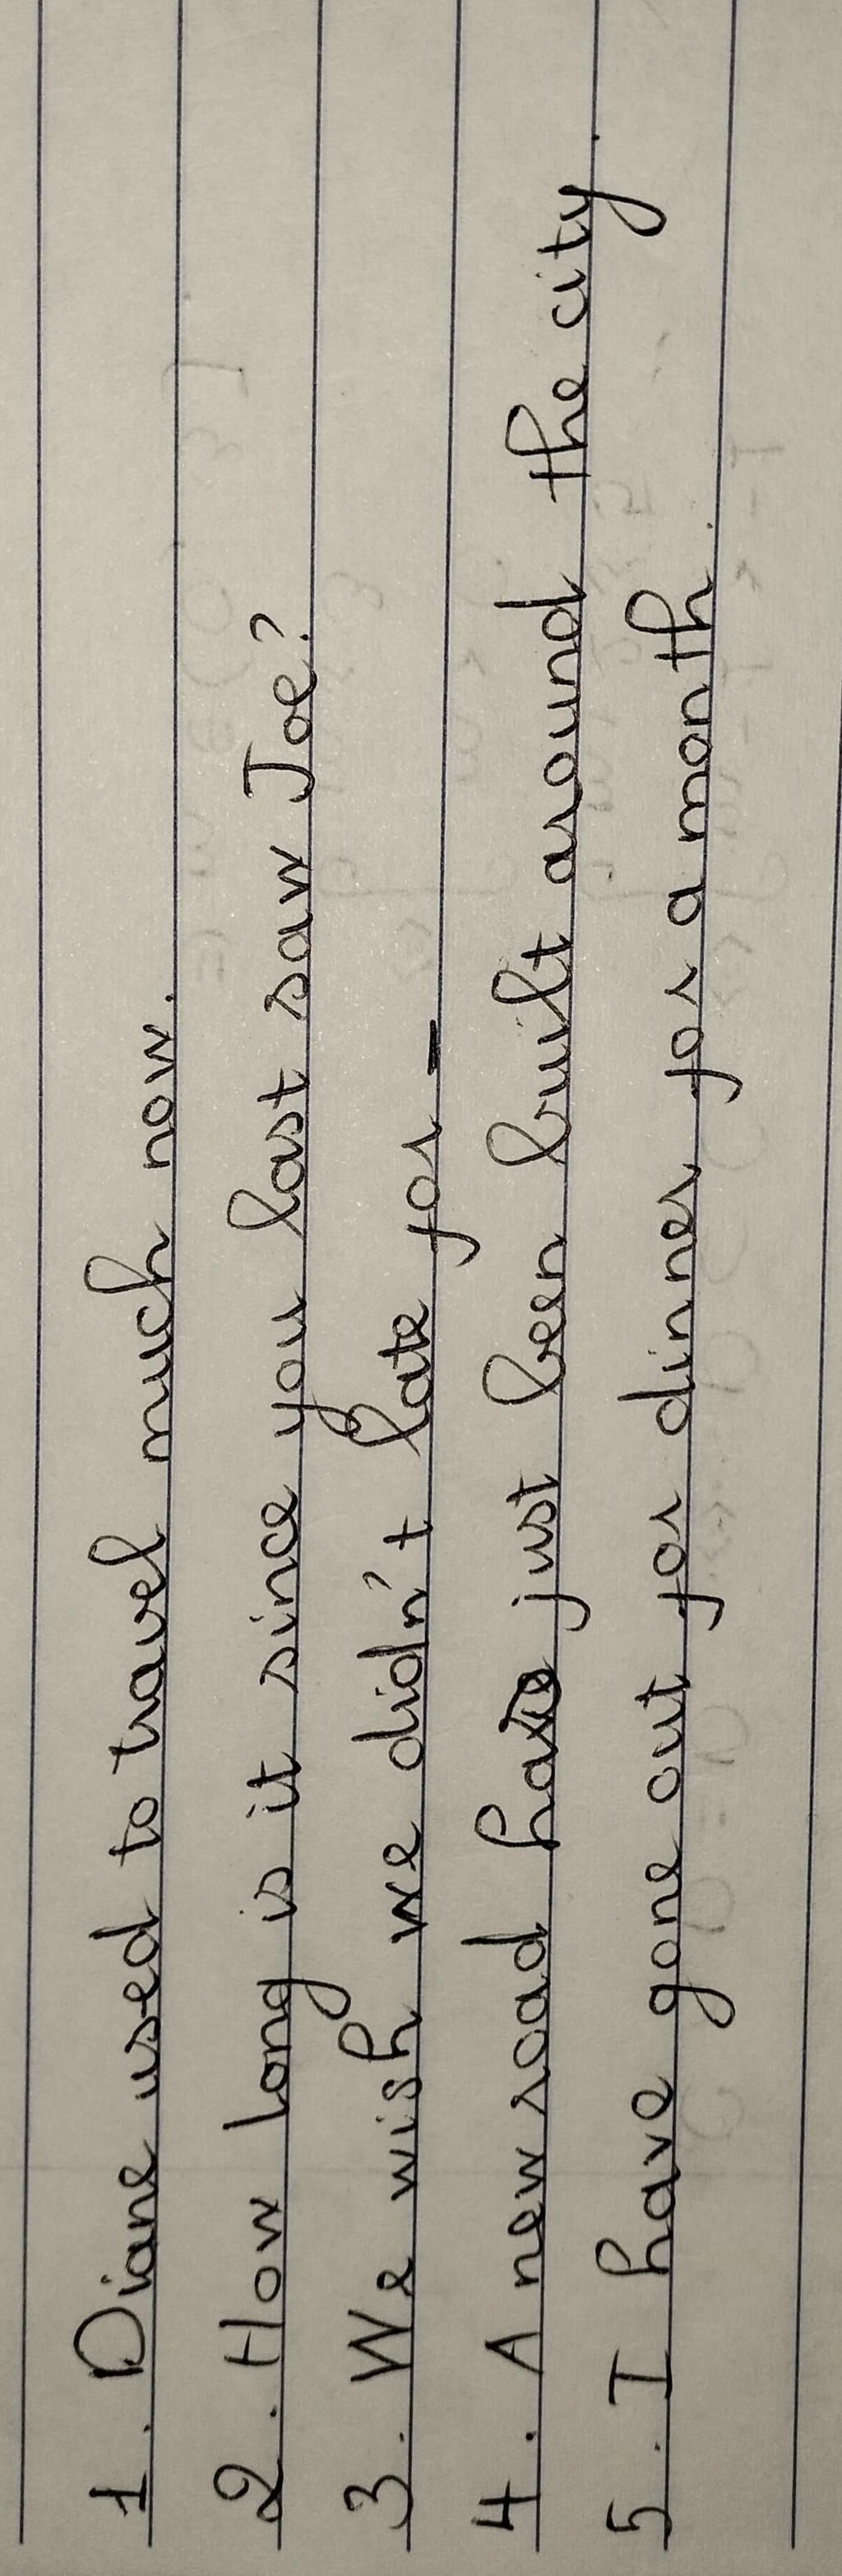 1. Diane used to travel much now.
2. How long is it since you last saw Joe?
3. We wish we didn't late for -
4. A new road has just been built around the city.
5. I have gone out for dinner for a month.